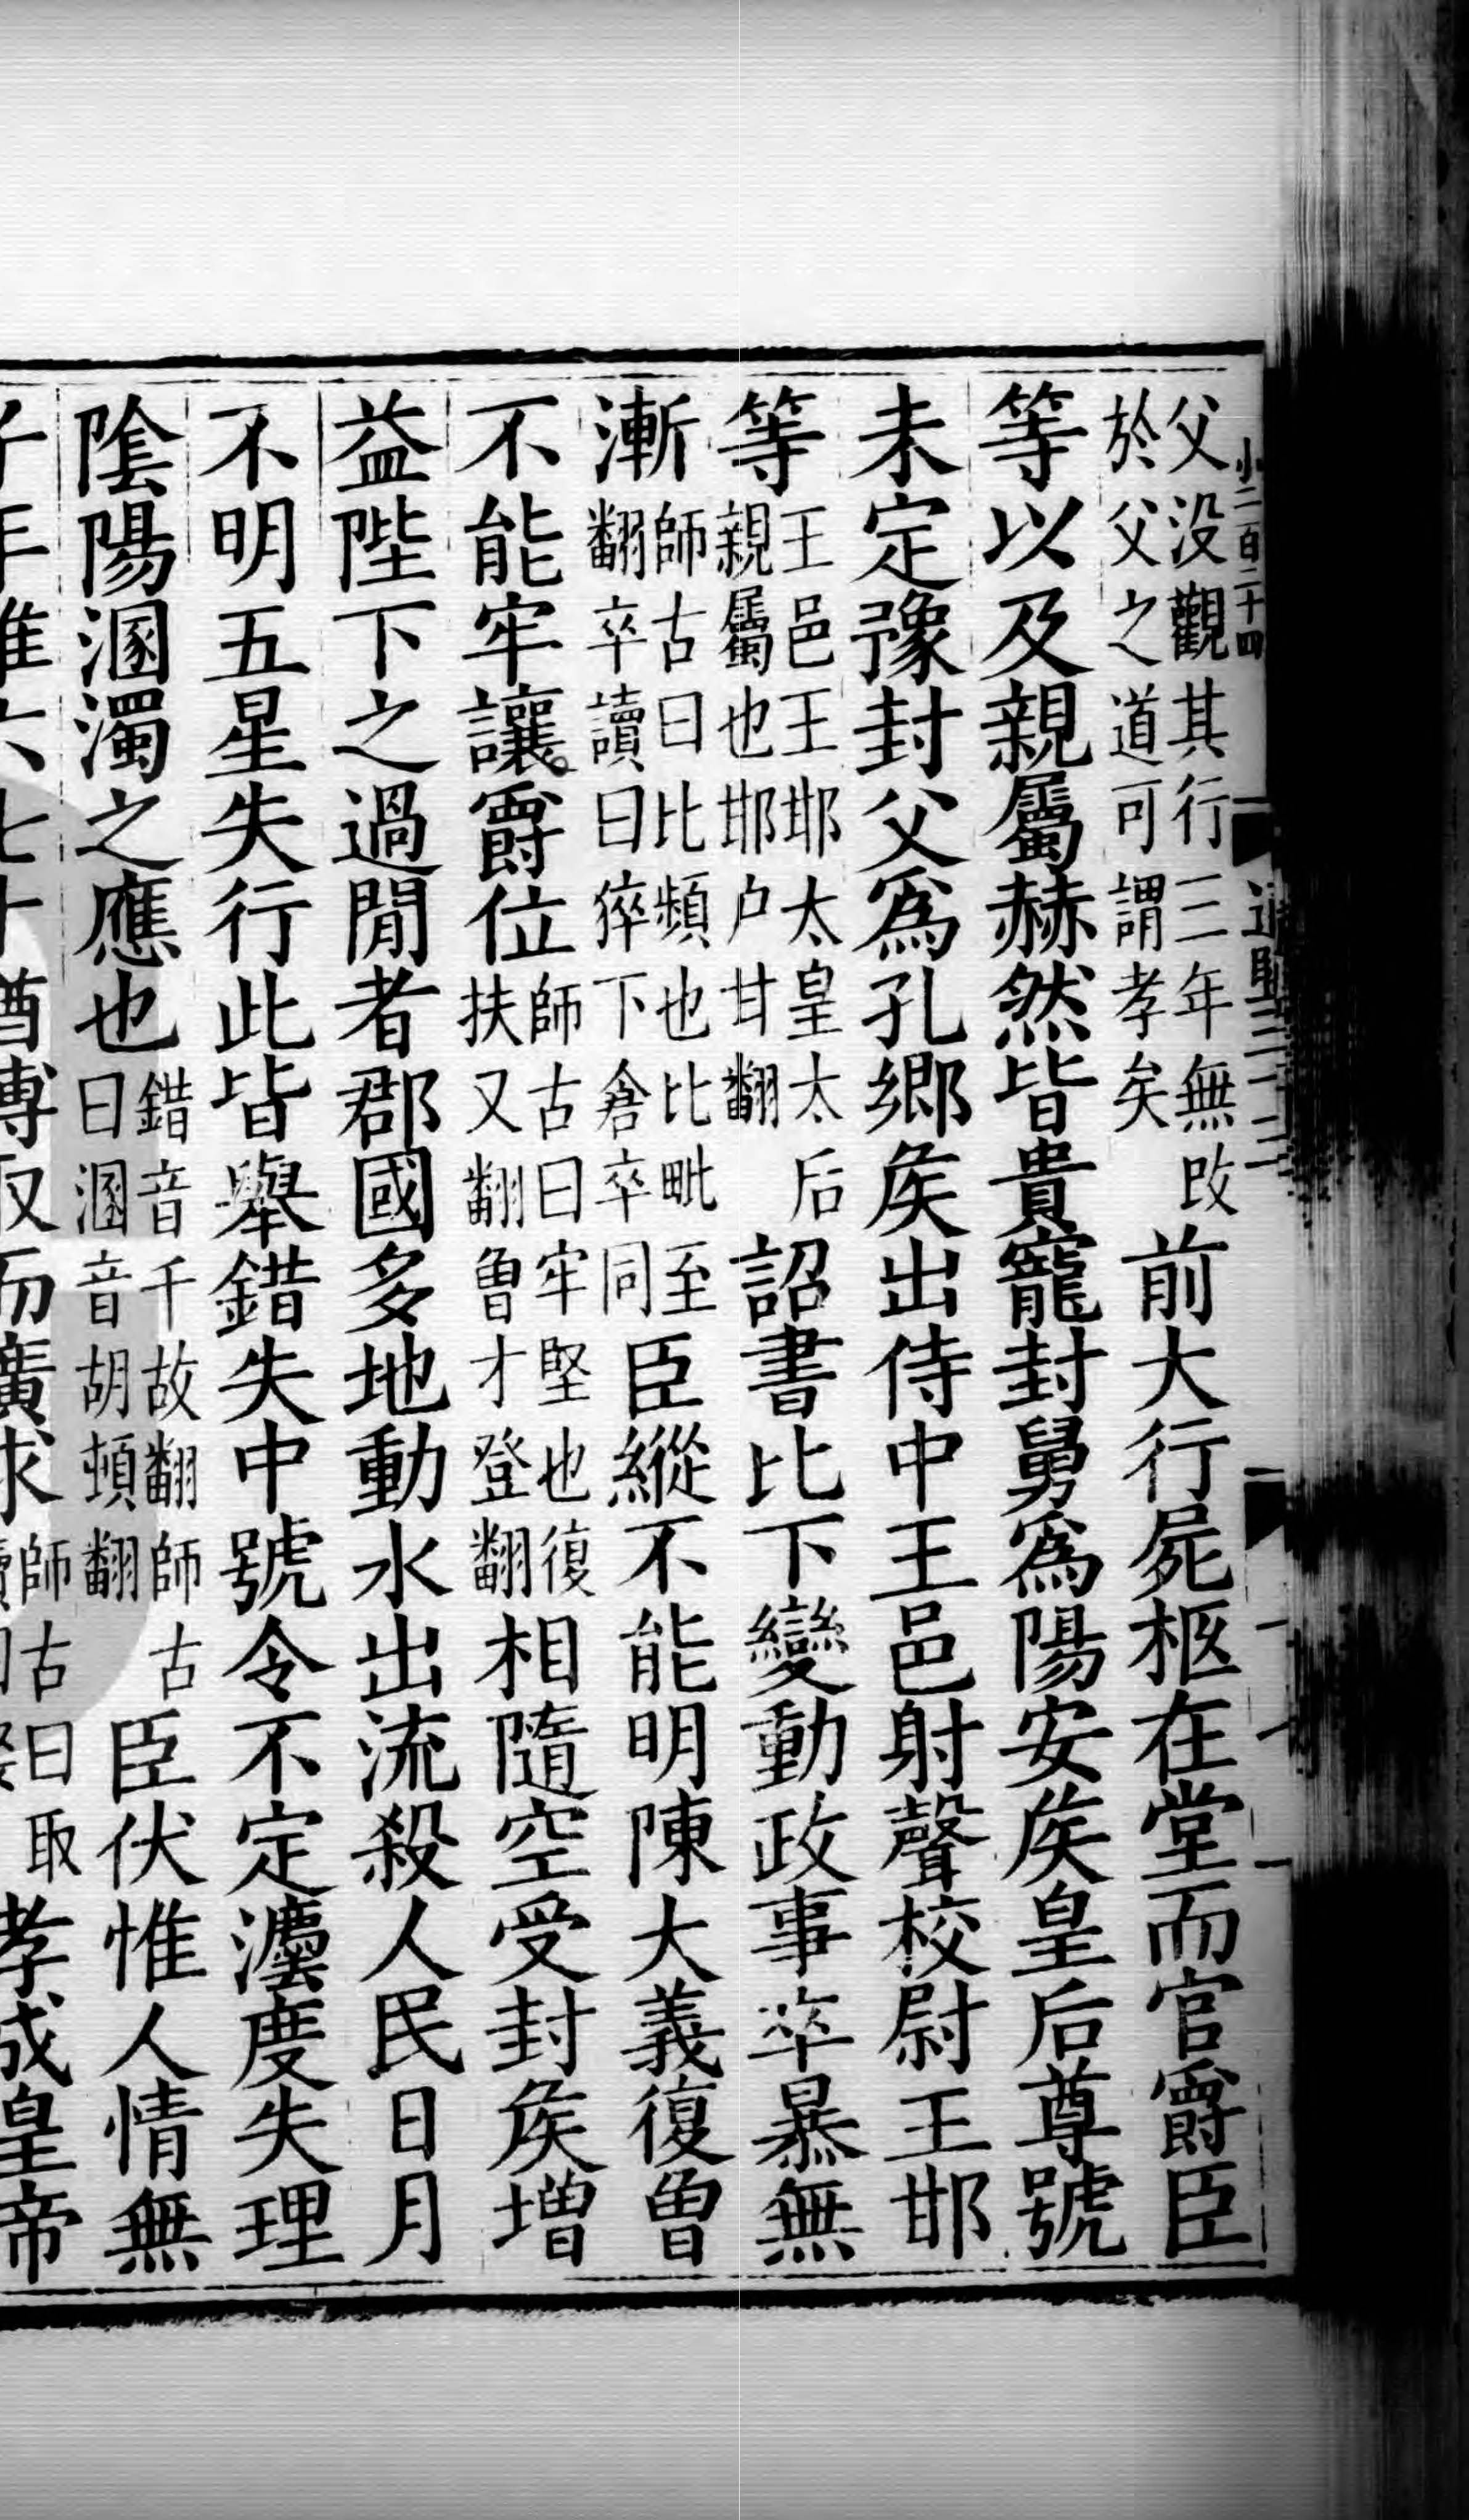 小二百二十四
父没觀其行三年無改於父之道可謂孝矣前大行屍柩在堂而官爵臣
等以及親屬赫然皆貴寵封舅爲陽安矦皇后尊號
未定豫封父爲孔鄉矦出侍中王邑射聲校尉王邯
等王邑王邯太皇太后親屬也邯户甘翻詔書比下變動政事卒暴無
漸師古曰比頻也比毗至翻卒讀曰猝下倉卒同臣縱不能明陳大義復曾
不能牢讓爵位師古曰牢堅也復扶又翻曾才登翻相隨空受封矦增
益陛下之過閒者郡國多地動水出流殺人民日月
不明五星失行此皆舉錯失中號令不定灋度失理
隂陽溷濁之應也錯音千故翻師古曰溷音胡頓翻臣伏惟人情無